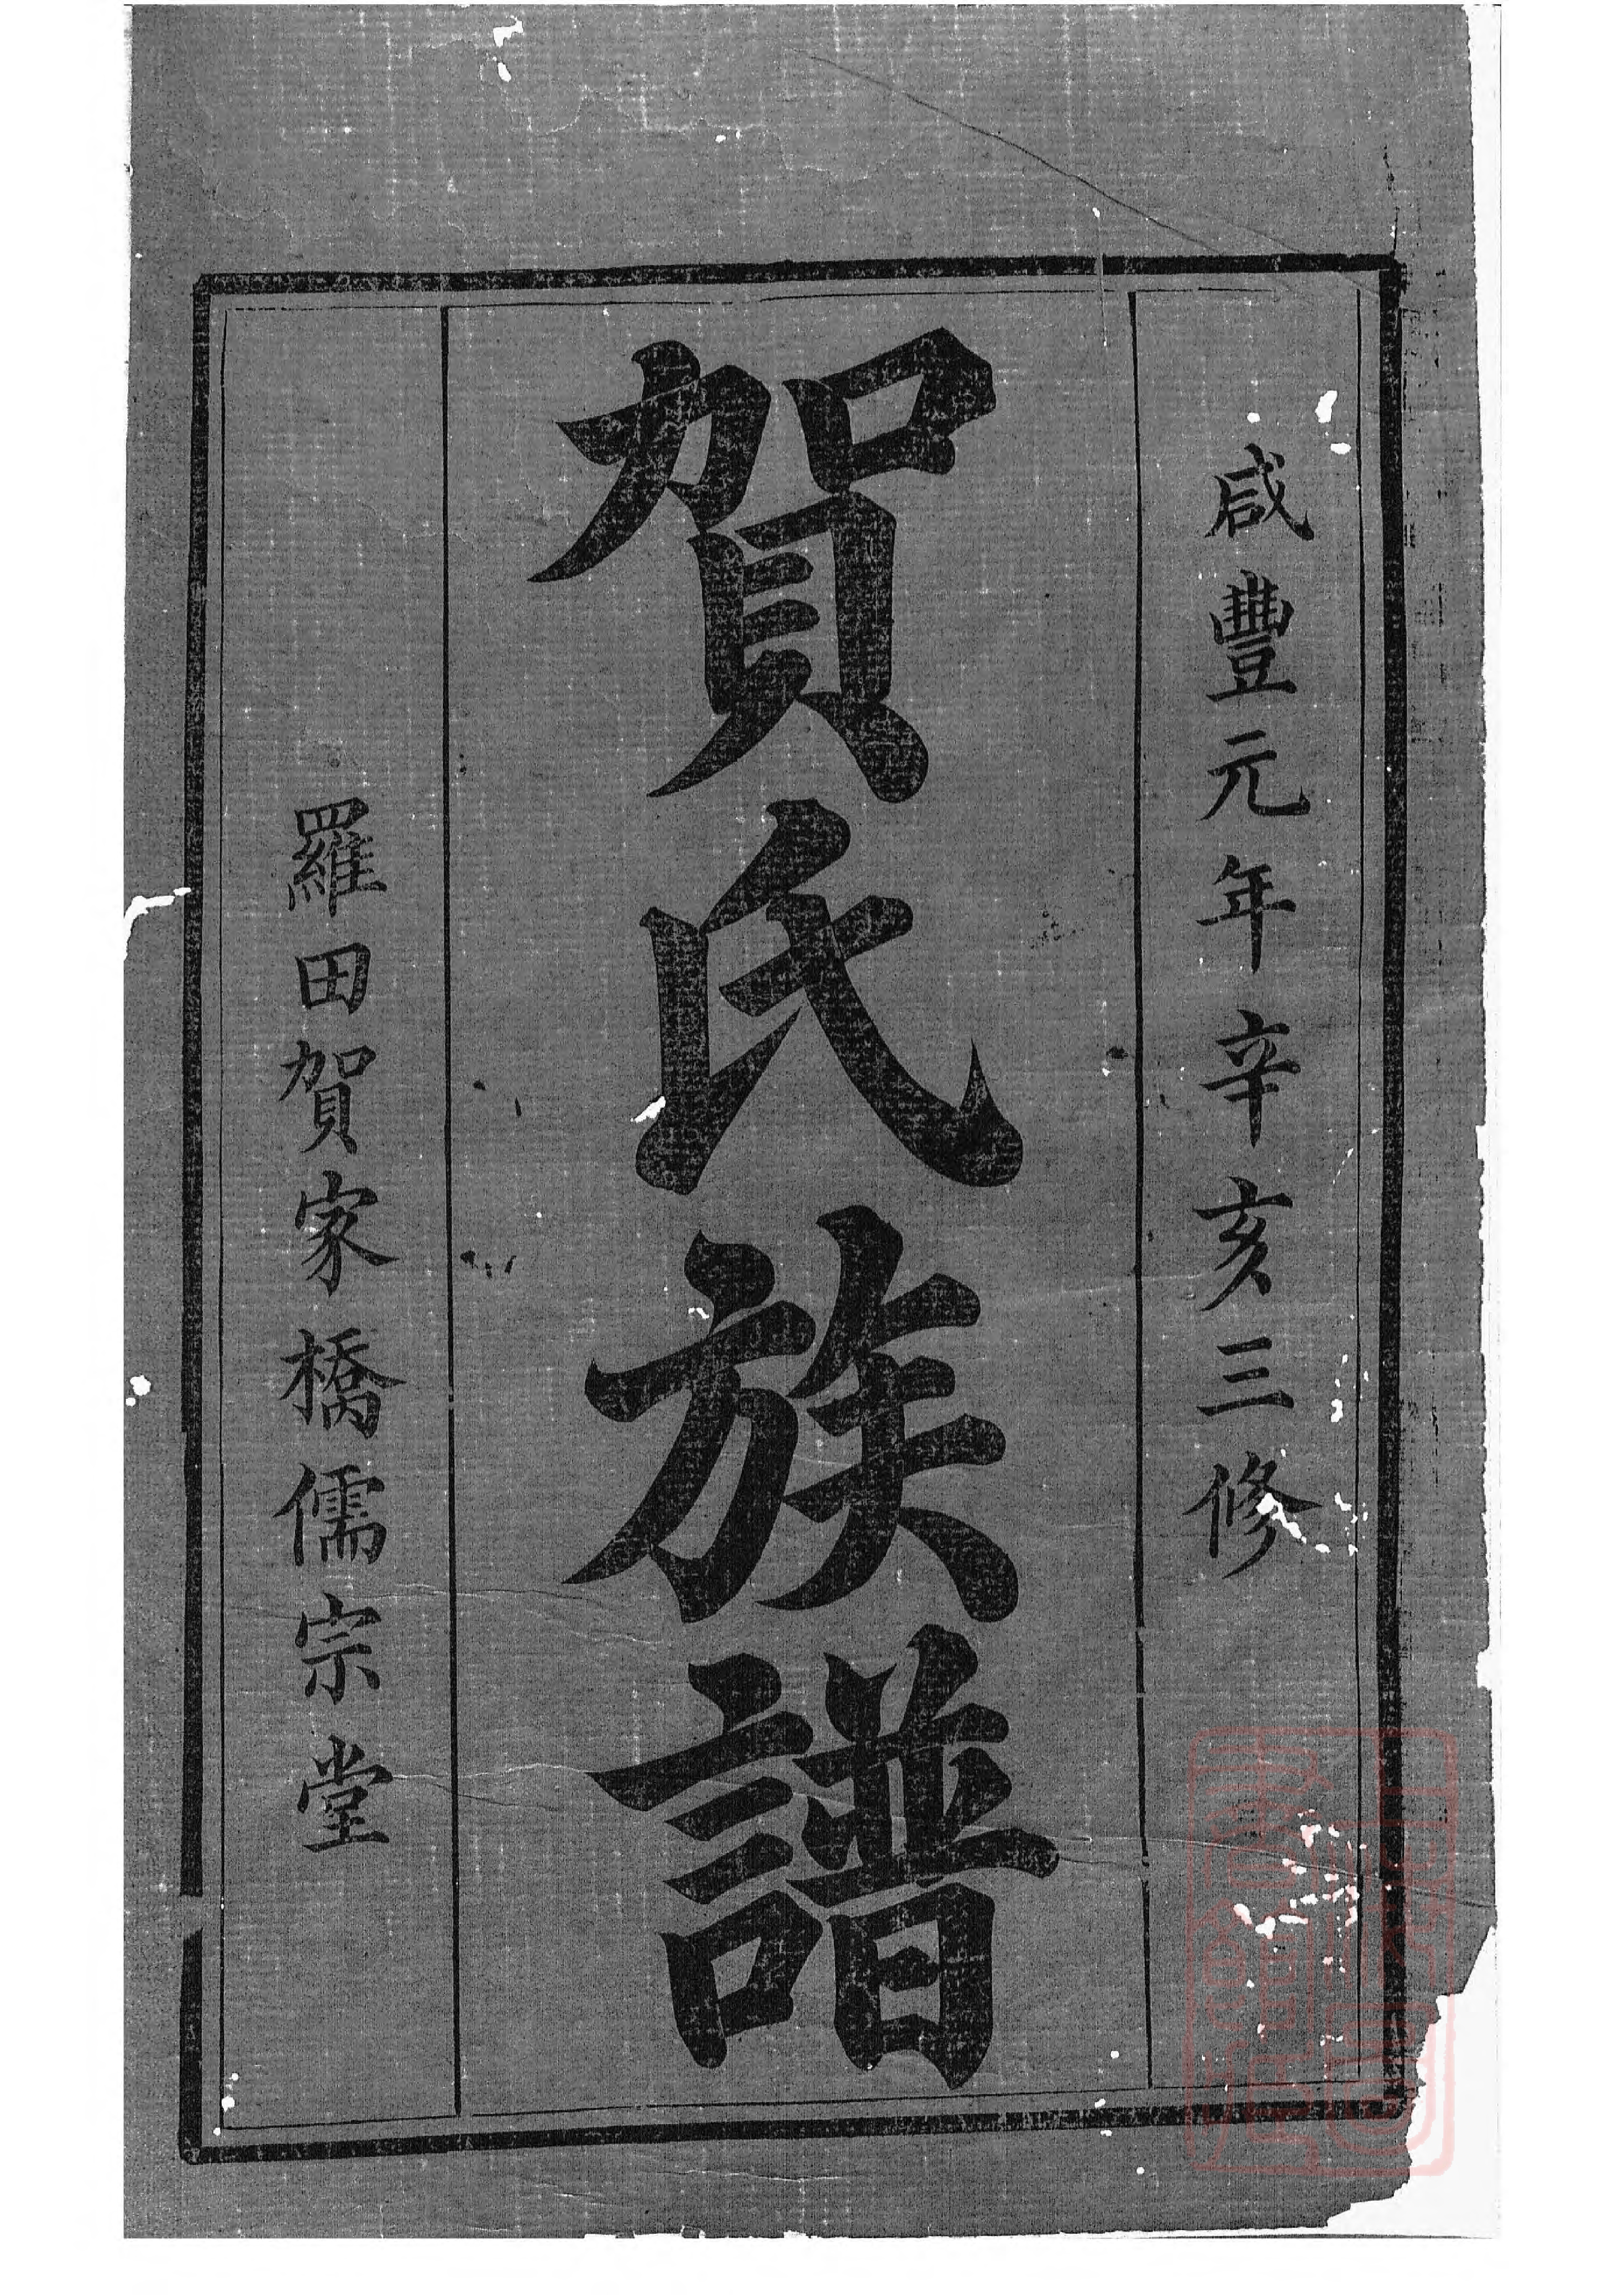 咸豐元年辛亥三修
賀氏族譜
羅田賀家橋儒宗堂